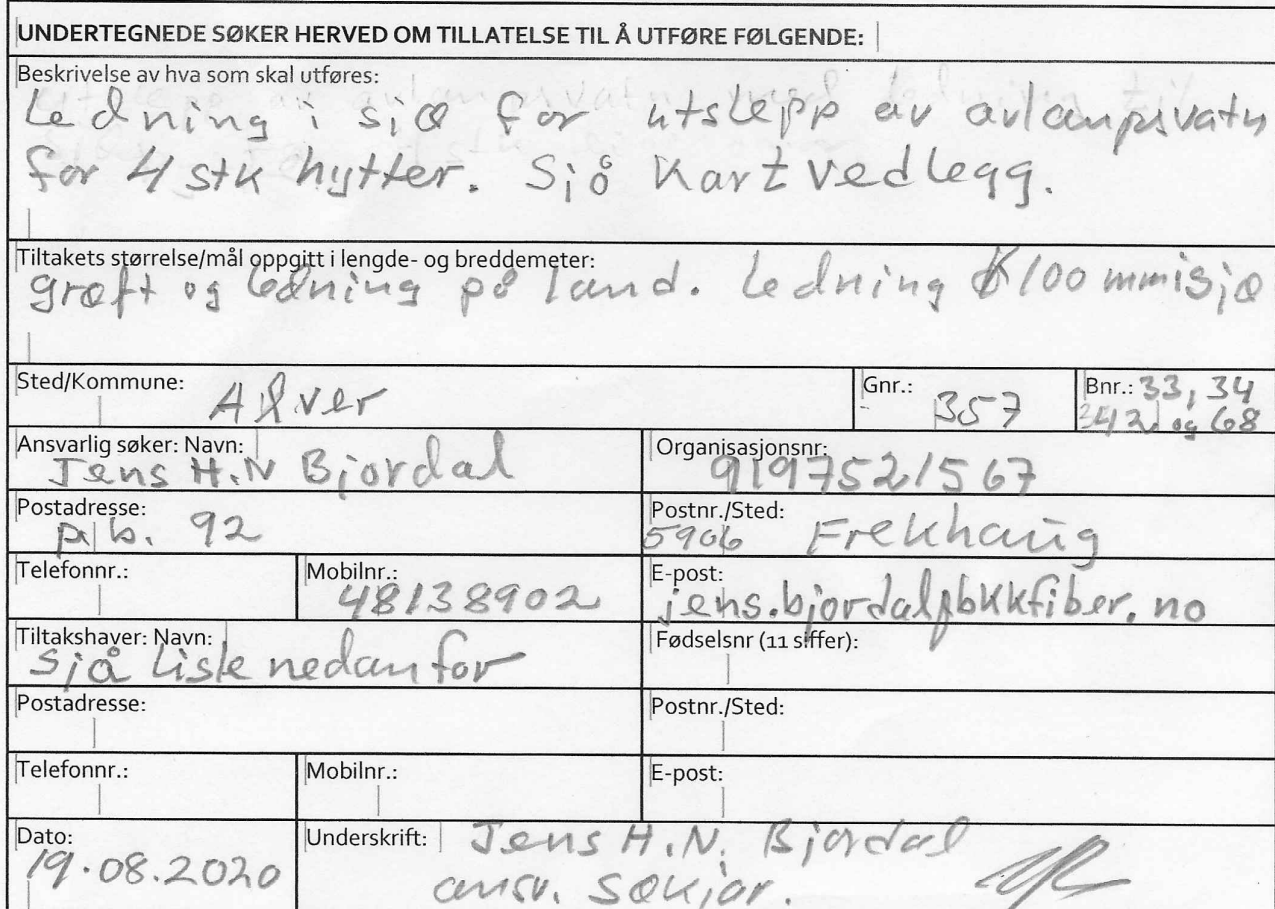 UNDERTEGNEDE SØKER HERVED OM TILLATELSE TIL Å UTFØRE FØLGENDE:
Beskrivelse av hva som skal utføres:
Ledning i sjø for utslepp av avlaupsvatn
for 4 stk hytter. Sjå Kartvedlegg.
Tiltakets størrelse/mål oppgitt i lengde- og breddemeter:
grøft og ledning på land. Ledning Ø100 mm i sjø
Sted/Kommune: Alver Gnr.: 357 Bnr.: 33, 34
342 og 68
Ansvarlig søker: Navn: Jens H.N Bjordal Organisasjonsnr: 9197521567
Postadresse: p.b. 92 Postnr./Sted: 5906 Frekhaug
Telefonnr.: Mobilnr.: 48138902 E-post: jens.bjordal@bkkfiber.no
Tiltakshaver: Navn: Sjå liste nedanfor Fødselsnr (11 siffer):
Postadresse: Postnr./Sted:
Telefonnr.: Mobilnr.: E-post:
Dato: 19.08.2020 Underskrift: Jens H.N. Bjordal
ansv. søkjar.